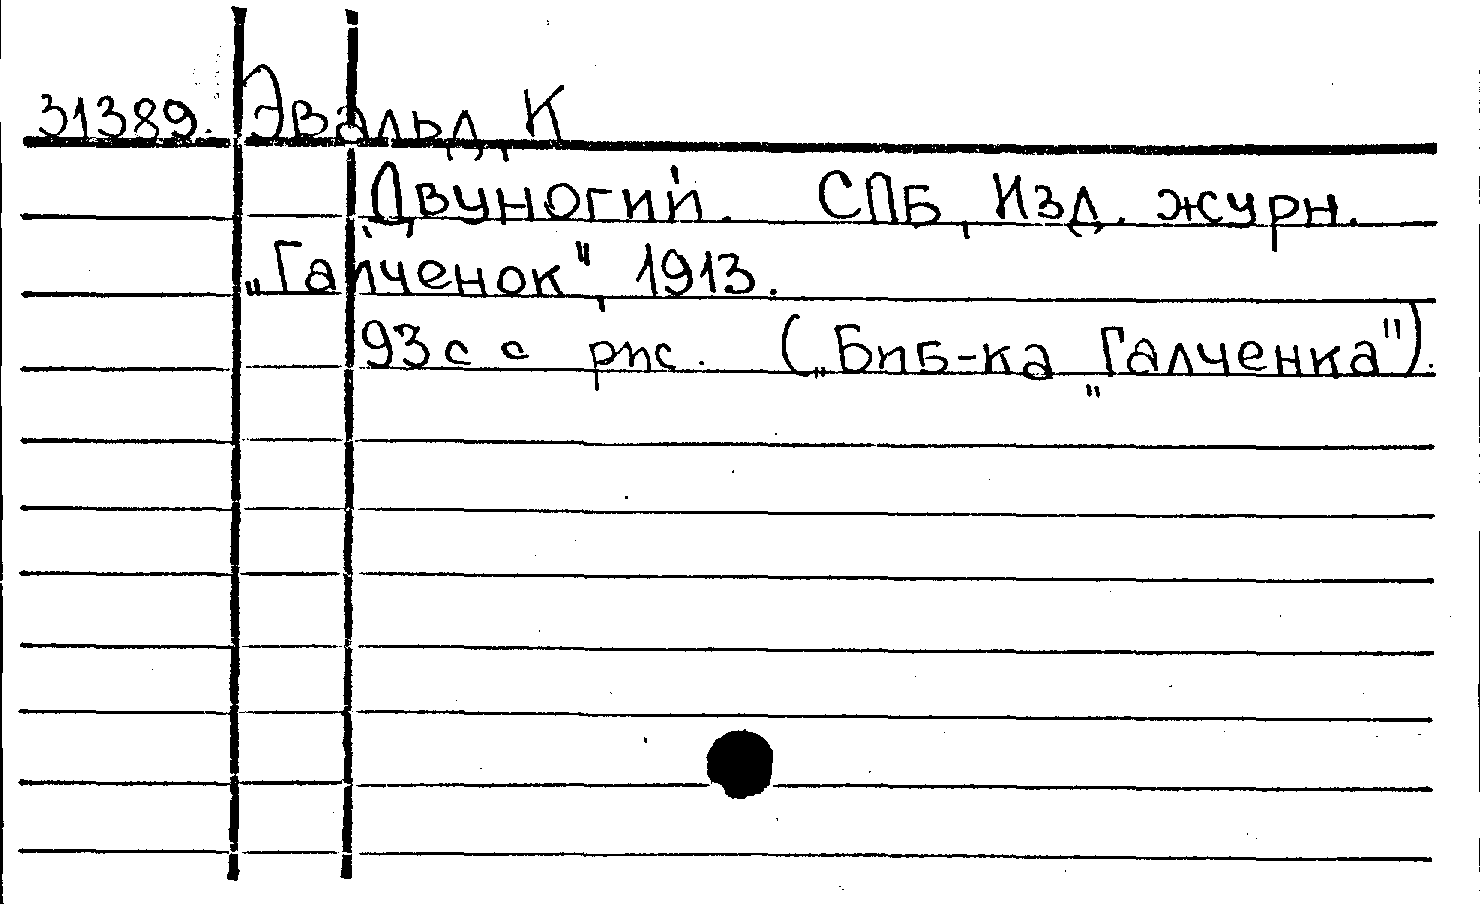 31389. Эвальд, К
Двуногий. СПБ, Изд. журн.
„Галченок", 1913.
93 с с рис. („Биб-ка „Галченка").